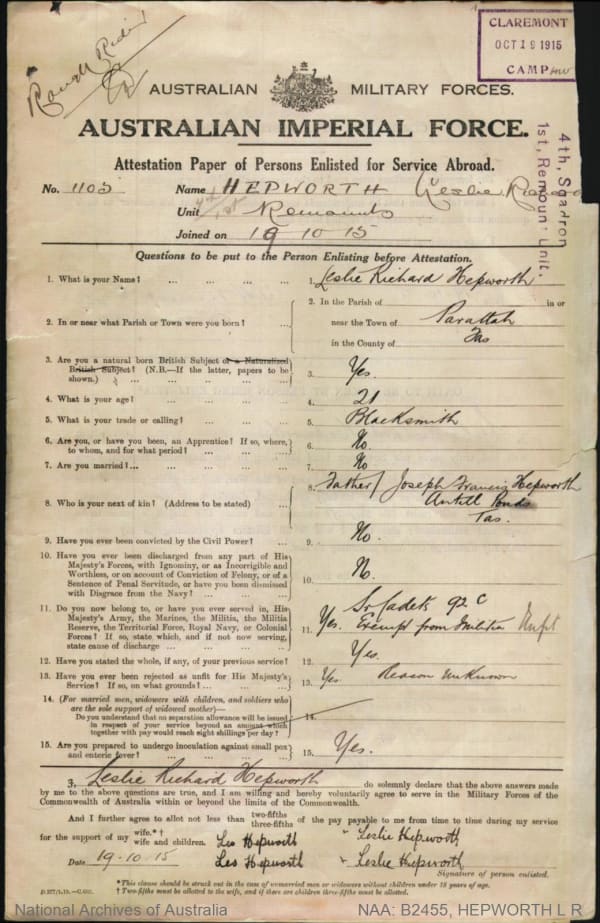 Rough Rider
CLAREMONT
OCT 19 1915
CAMP
AUSTRALIAN MILITARY FORCES.
AUSTRALIAN IMPERIAL FORCE.
4th, Sqadron
1st, Remount Unit.
Attestation Paper of Persons Enlisted for Service Abroad.
No. 1103 Name HEPWORTH Leslie
Unit Remounts
Joined on 19 10 15
Questions to be put to the Person Enlisting before Attestation.
1. What is your Name? ... ... ... ... 1. Leslie Richard Hepworth
2. In or near what Parish or Town were you born? ... 2. In the Parish of in or
near the Town of Parattah
in the County of Tas
3. Are you a natural born British Subject or a Naturalized
British Subject? (N.B.—If the latter, papers to be
shown.) ... ... ... ... 3. Yes.
4. What is your age? ... ... ... ... 4. 21
5. What is your trade or calling? ... ... ... 5. Blacksmith
6. Are you, or have you been, an Apprentice? If so, where,
to whom, and for what period? ... ... ... 6. No
7. Are you married?... ... ... ... ... 7. No
8. Who is your next of kin? (Address to be stated) ... 8. Father Joseph Francis Hepworth
Antill Ponds
Tas.
9. Have you ever been convicted by the Civil Power? ... 9. No.
10. Have you ever been discharged from any part of His
Majesty's Forces, with Ignominy, or as Incorrigible and
Worthless, or on account of Conviction of Felony, or of a
Sentence of Penal Servitude, or have you been dismissed
with Disgrace from the Navy? ... ... ... 10. No.
11. Do you now belong to, or have you ever served in, His
Majesty's Army, the Marines, the Militia, the Militia
Reserve, the Territorial Force, Royal Navy, or Colonial
Forces? If so, state which, and if not now serving,
state cause of discharge ... ... ... 11. Yes. Sr Cadets 92 C
Exempt from Militia Unfit
12. Have you stated the whole, if any, of your previous service? 12. Yes.
13. Have you ever been rejected as unfit for His Majesty's
Service? If so, on what grounds? ... ... ... 13. Yes. Reason Unknown
14. (For married men, widowers with children, and soldiers who
are the sole support of widowed mother)—
Do you understand that no separation allowance will be issued
in respect of your service beyond an amount which
together with pay would reach eight shillings per day? 14.
15. Are you prepared to undergo inoculation against small pox
and enteric fever? ... ... ... ... 15. Yes.
I, Leslie Richard Hepworth do solemnly declare that the above answers made
by me to the above questions are true, and I am willing and hereby voluntarily agree to serve in the Military Forces of the
Commonwealth of Australia within or beyond the limits of the Commonwealth.
And I further agree to allot not less than two-fifths
three-fifths of the pay payable to me from time to time during my service
for the support of my wife.* †
wife and children. Les Hepworth Leslie Hepworth
Date 19-10-15 Les Hepworth Leslie Hepworth
Signature of person enlisted.
*This clause should be struck out in the case of unmarried men or widowers without children under 18 years of age.
† Two-fifths must be allotted to the wife, and if there are children three-fifths must be allotted.
National Archives of Australia NAA: B2455, HEPWORTH L R